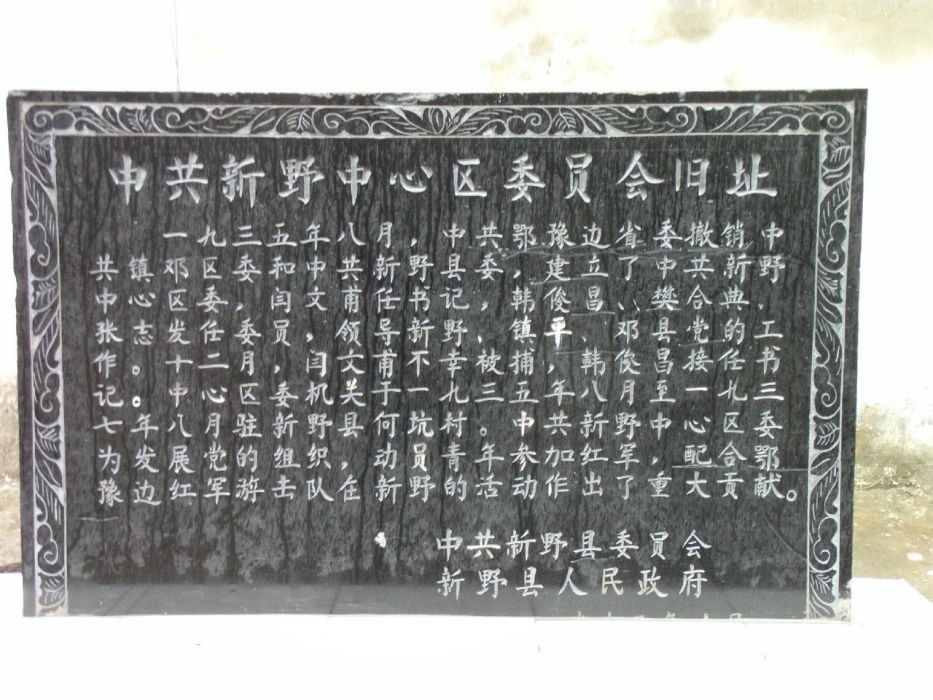 中共新野中心区委员会旧址
一九三五年八月，中共鄂豫边省委撤销中
共镇邓区委和中共新野县委，建立了中共新野
中心区委，闫文甫任书记，韩俊昌、樊合典、
张志发任委员，领导新野、镇平、邓县党的工
作。十二月，闫文甫不幸被捕，韩俊昌接任书
记。中心区委机关于一九三五年八月至一九三
七年八月驻新野县何坑村。中共新野中心区委
为发展党的组织，动员青年参加红军，配合鄂
豫边红军游击队在新野的活动作出了重大贡献。
中共新野县委员会
新野县人民政府